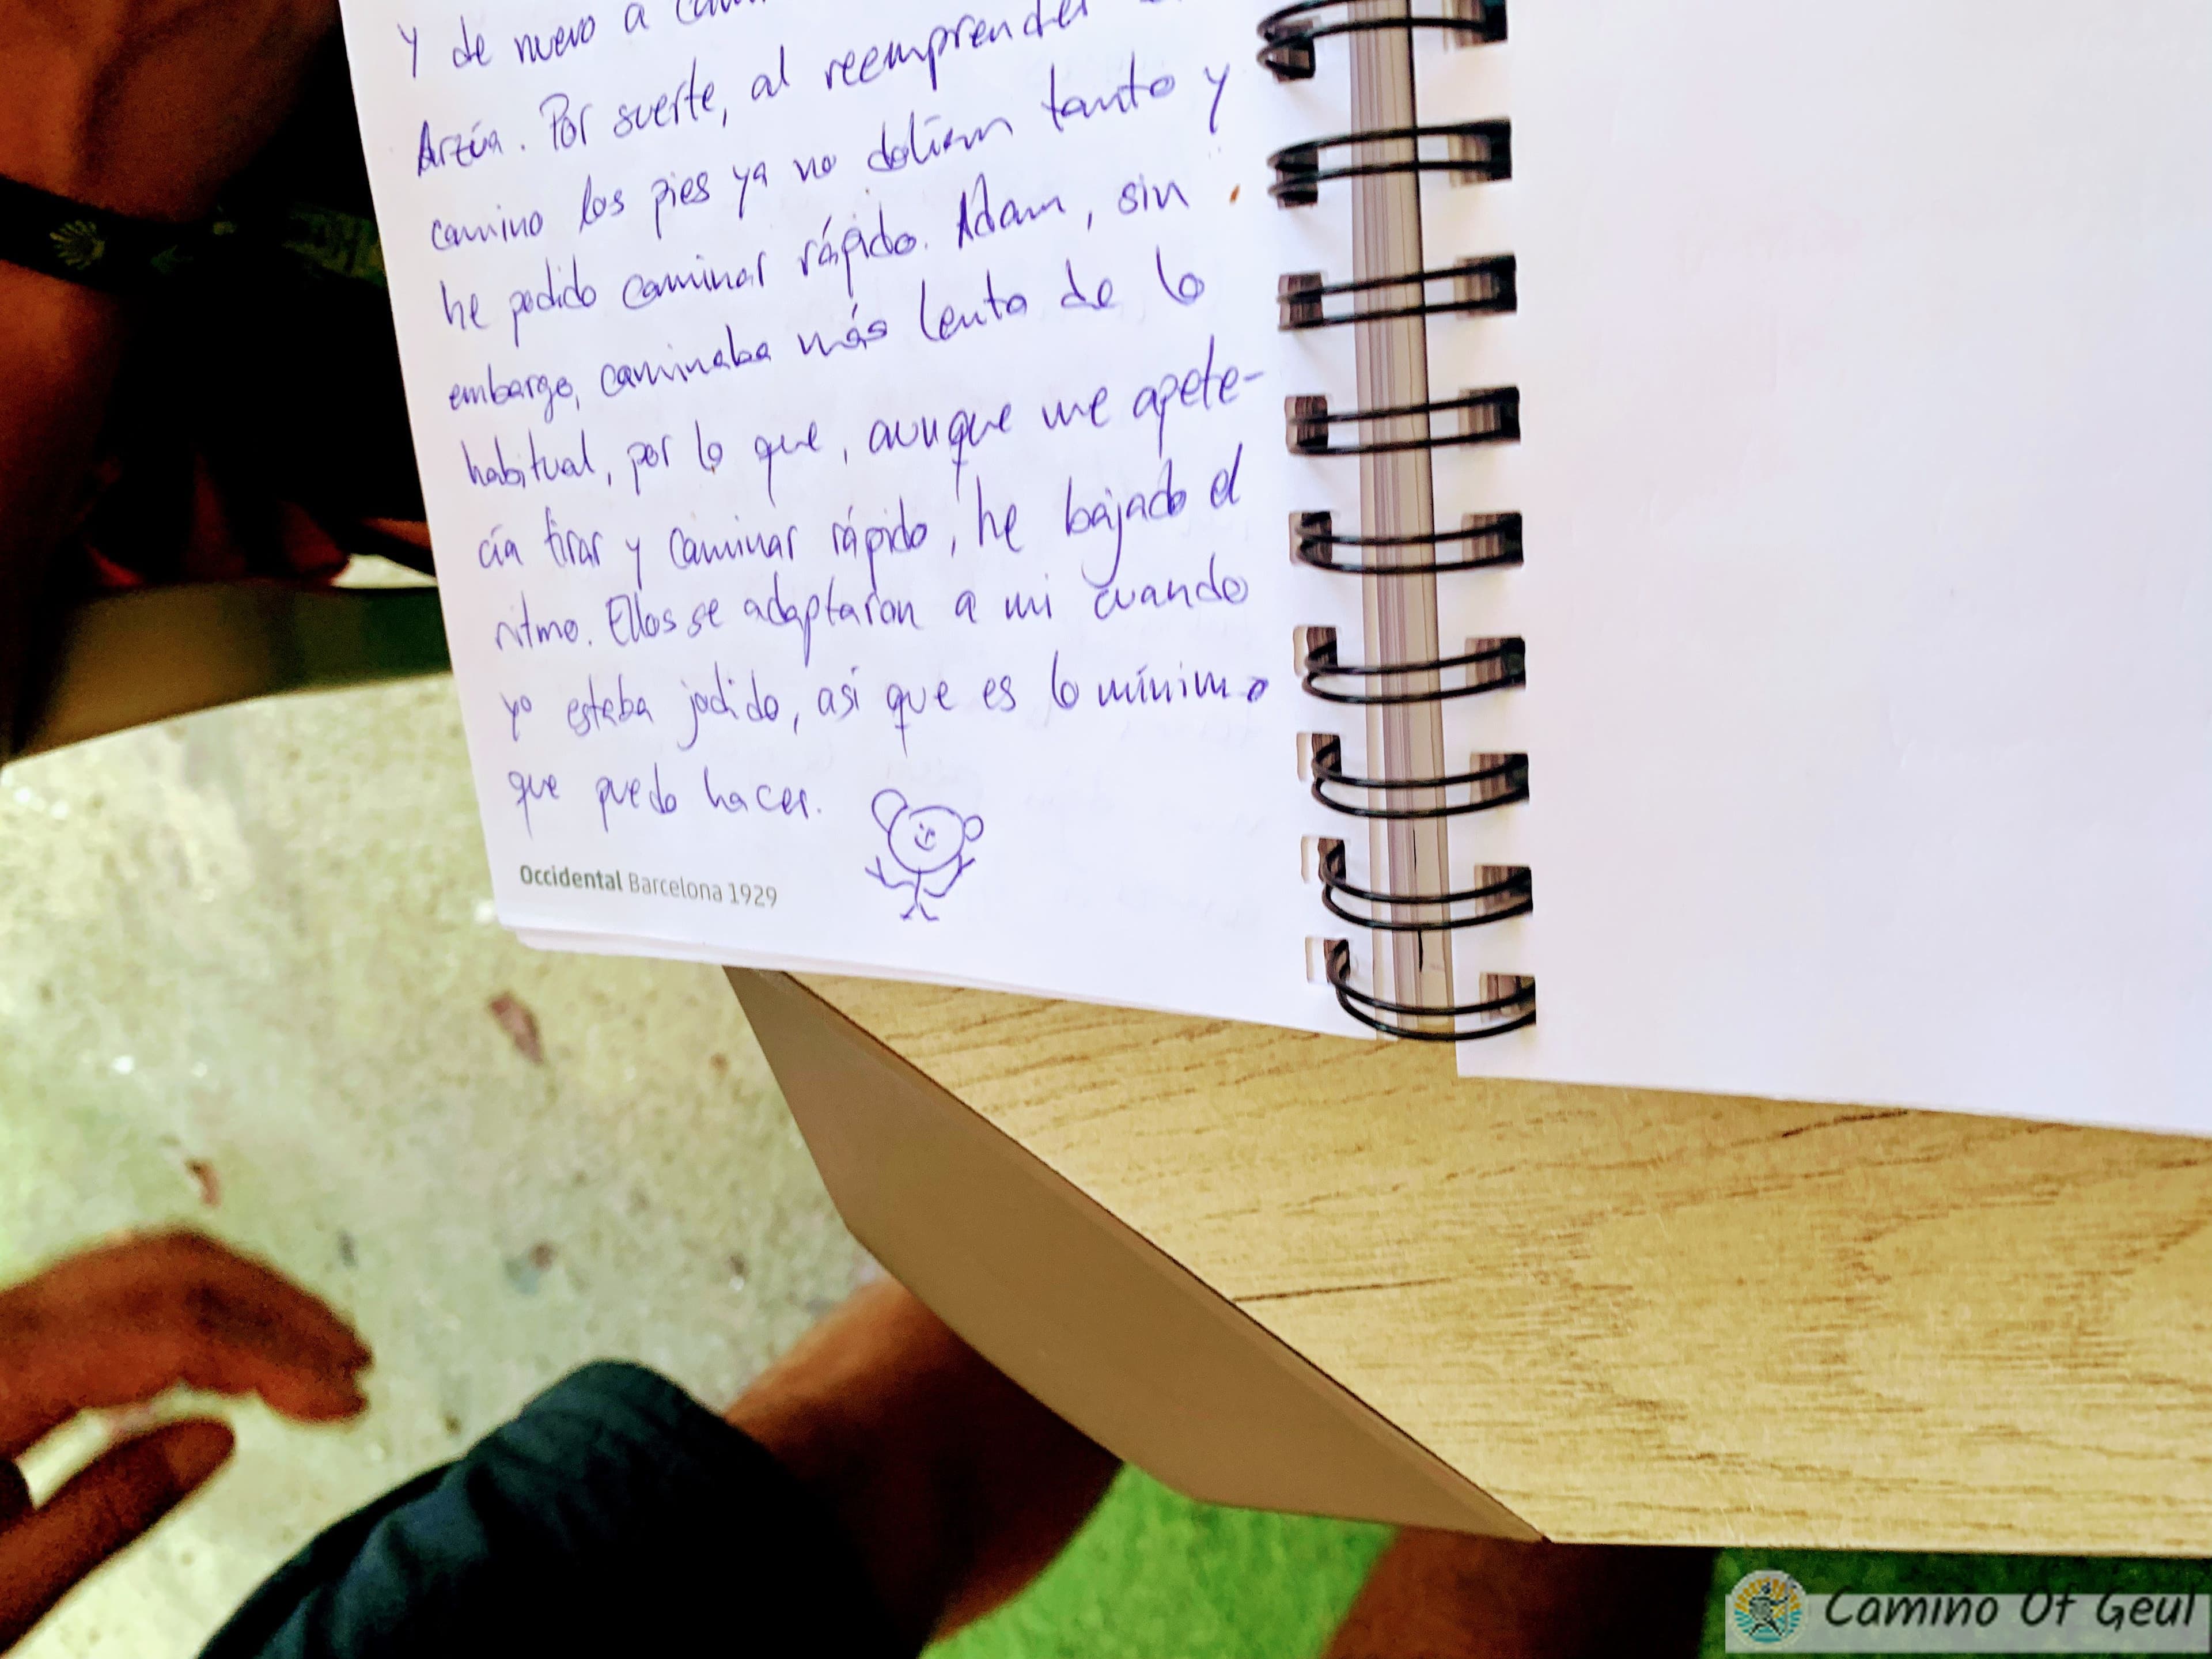 Y de nuevo a
Arzúa. Por suerte, al reemprender
camino los pies ya no dolían tanto y
he podido caminar rápido. Adam, sin
embargo, caminaba más lento de lo
habitual, por lo que, aunque me apete-
cía tirar y caminar rápido, he bajado el
ritmo. Ellos se adaptaron a mi cuando
yo estaba jodido, así que es lo mínimo
que puedo hacer.
Occidental Barcelona 1929
Camino Of Geul